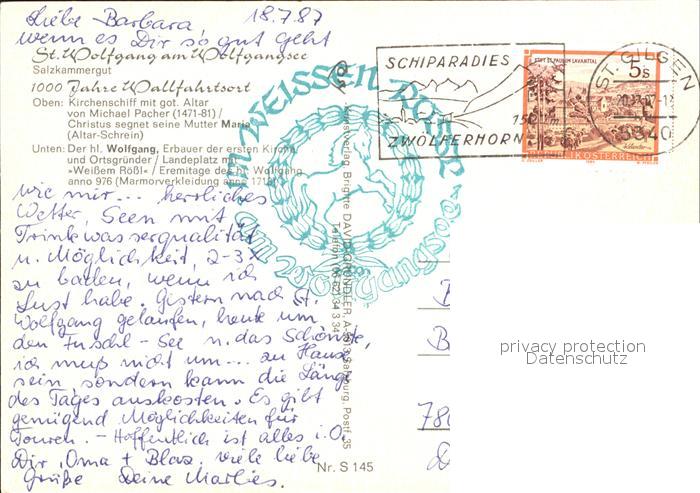 Liebe Barbara 18.7.87
wenn es Dir so gut geht
St. Wolfgang am Wolfgangsee
Salzkammergut
1000 Jahre Wallfahrtsort
Oben: Kirchenschiff mit got. Altar
von Michael Pacher (1471-81) /
Christus segnet seine Mutter Maria
(Altar-Schrein)
Unten: Der hl. Wolfgang, Erbauer der ersten Kirche
und Ortsgründer / Landeplatz mit
»Weißem Rößl« / Eremitage des hl. Wolfgang
anno 976 (Marmorverkleidung anno 171
wie mir... herrliches
Wetter, Seen mit
Trinkwasserqualität
u. Möglichkeit, 2-3x
zu baden, wenn ich
Lust habe. Gestern nach St.
Wolfgang gelaufen, heute um
den Fuschl-See u. das Schönste,
ich muß nicht um... zu Hause
sein, sondern kann die Länge
des Tages auskosten. Es gibt
genügend Möglichkeiten für
Touren. - Hoffentlich ist alles i.O.
Dir, Oma + Blaz, viele liebe
Grüße Deine Marlies.
SCHIPARADIES
ZWÖLFERHORN
STIFT ST. PAUL IM LAVANTTAL
5s
REPUBLIK ÖSTERREICH
ST. GILGEN
5340
IM WEISSEN RÖSSL
am Wolfgangsee
Kunstverlag Brigitte DAVID-GRÜNDLER, A-5013 Salzburg, Postf. 35
Nr. S 145
B
B
780
D
privacy protection
Datenschutz